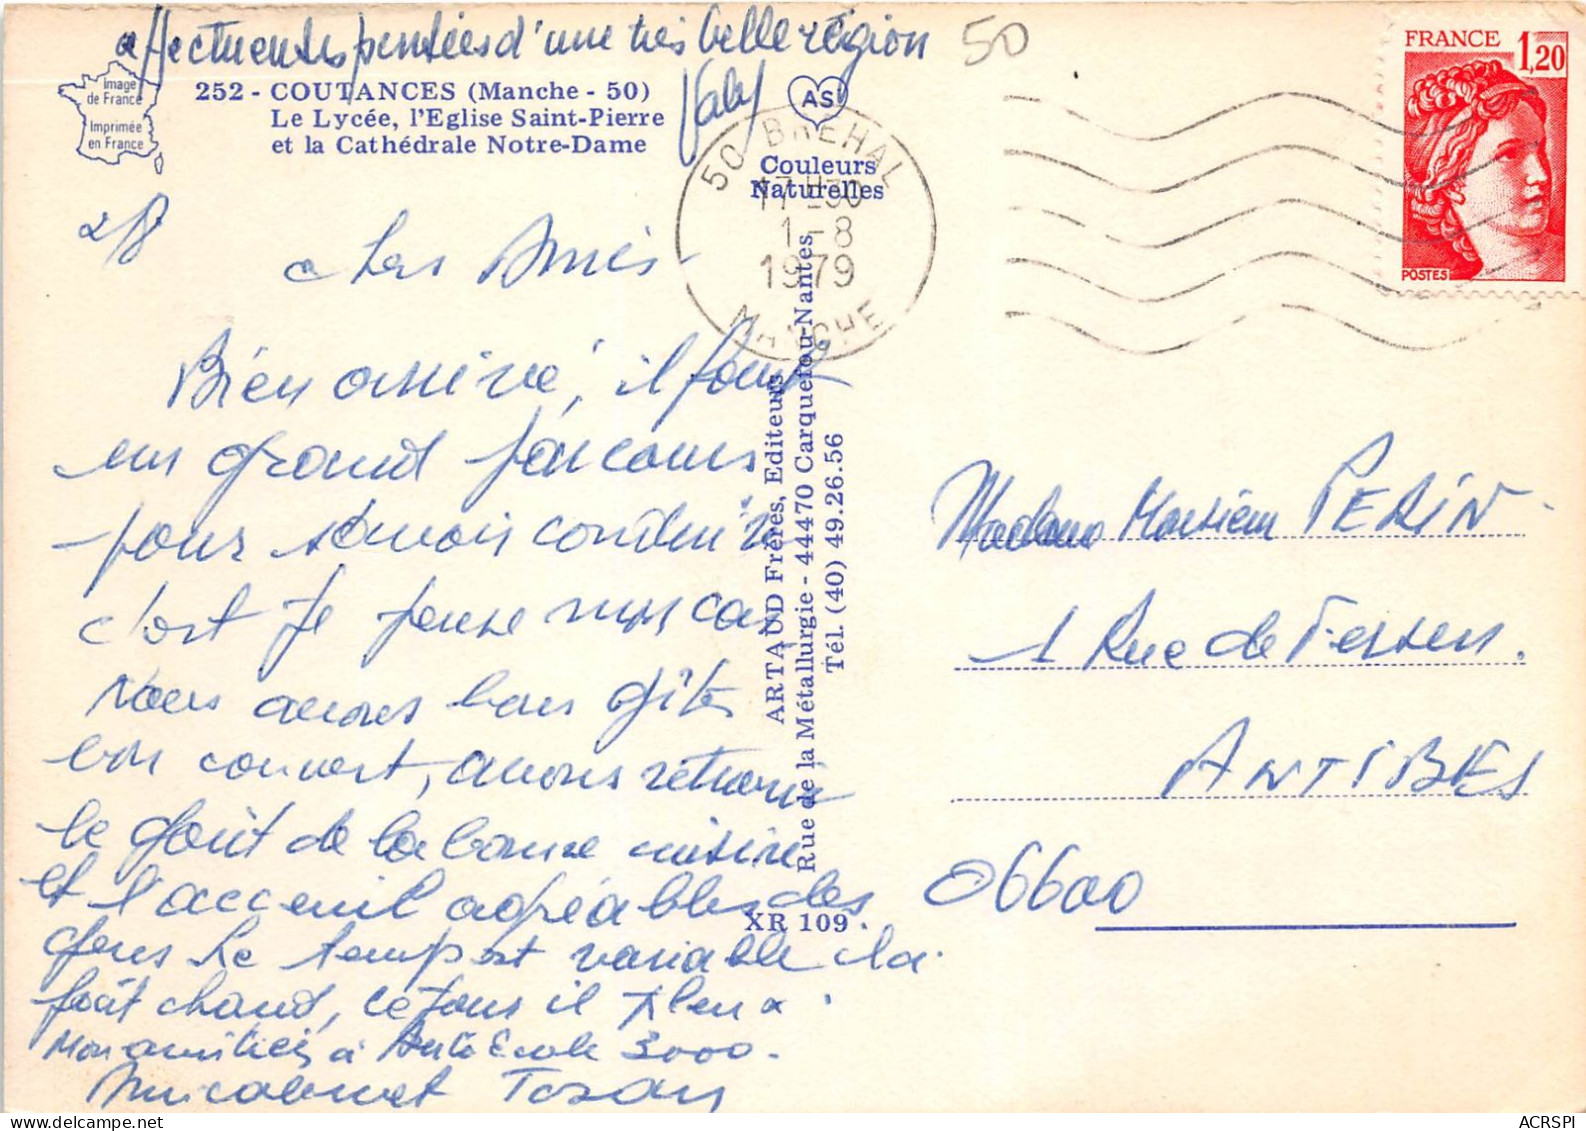 affectueuses pensées d'une très belle région
Valy
50
Image
de France
Imprimée
en France
252 - COUTANCES (Manche - 50)
Le Lycée, l'Eglise Saint-Pierre
et la Cathédrale Notre-Dame
AS
Couleurs
Naturelles
50 BREHAL
17 H30
1-8
1979
MANCHE
FRANCE 1,20
POSTES
Chers Amis
Bien arrivé, il faut
un grand parcours
pour savoir conduire
c'est je pense mon cas
nous avons bons gîtes
bon couvert, avons retrouvé
le goût de la bonne cuisine
et l'acceuil agréable des
gens le temps est variable
fait chaud, il pleut
Mon amitiés à Auto Ecole 3000.
Amicalement
ARTAUD Frères, Editeurs
Rue de la Métallurgie - 44470 Carquefou-Nantes
Tél. (40) 49.26.56
XR 109
Madame Monsieur PERIN
1 Rue de Fersen.
ANTIBES
06600
ACRSPI